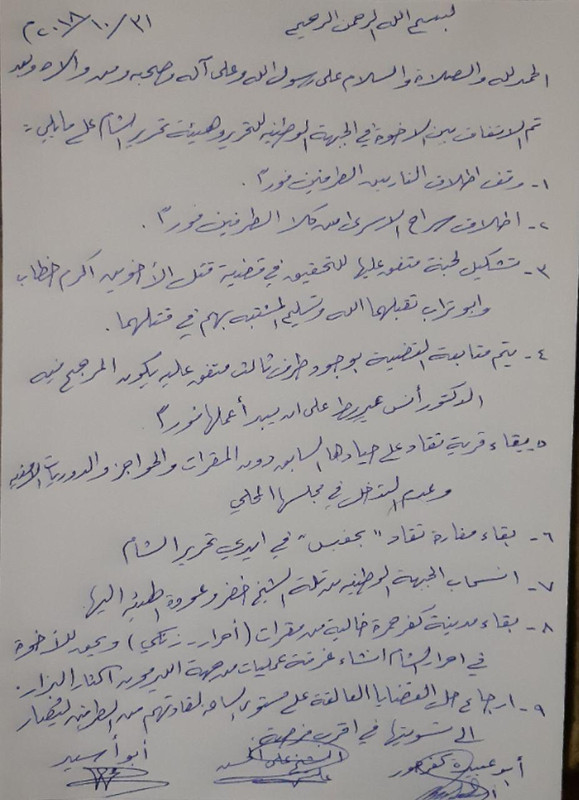 بسم الله الرحمن الرحيم
٣١/١٠/٢٠١٨م
الحمدلله والصلاة والسلام على رسول الله وعلى آله وصحبه ومن والاه وبعد
تم الاتفاق بين الاخوة في الجبهة الوطنية للتحرير وهيئة تحرير الشام على مايلي:
١- وقف اطلاق النار بين الطرفين فوراً.
٢- اطلاق سراح الاسرى من كلا الطرفين فوراً.
٣- تشكيل لجنة متفق عليها للتحقيق في قضية قتل الأخوين اكرم خطاب
وابو تراب تقبلهما الله وتسليم المشتبه بهم في قتلهما.
٤- يتم متابعة القضية بوجود طرف ثالث متفق عليه يكون المرجح فيه
الدكتور أنس عيروط على ان يبدأ عملها فوراً.
٥ بقاء قرية تقاد على حيادها السابق دون المقرات والحواجز والدوريات الامنية
وعدم التدخل في مجلسها المحلي
٦- بقاء مغارة تقاد "بحفيس" في ايدي تحرير الشام
٧- انسحاب الجبهة الوطنية من تلة الشيخ خضر وعودة اليها.
٨- بقاء مدينة كفرحمرة خالية من مقرات (أحرار - زنكي) ويحق للأخوة
في احرار الشام انشاء غرفة عمليات من جهة الليرمون
٩- ارجاع حل القضايا العالقة على مستوى الساحة لقادتهم من الطرفين ليصار
الى تسويتها في اقرب فرصة.
أبو عبيدة كفرحور
الشيخ علي
أبو أسيد